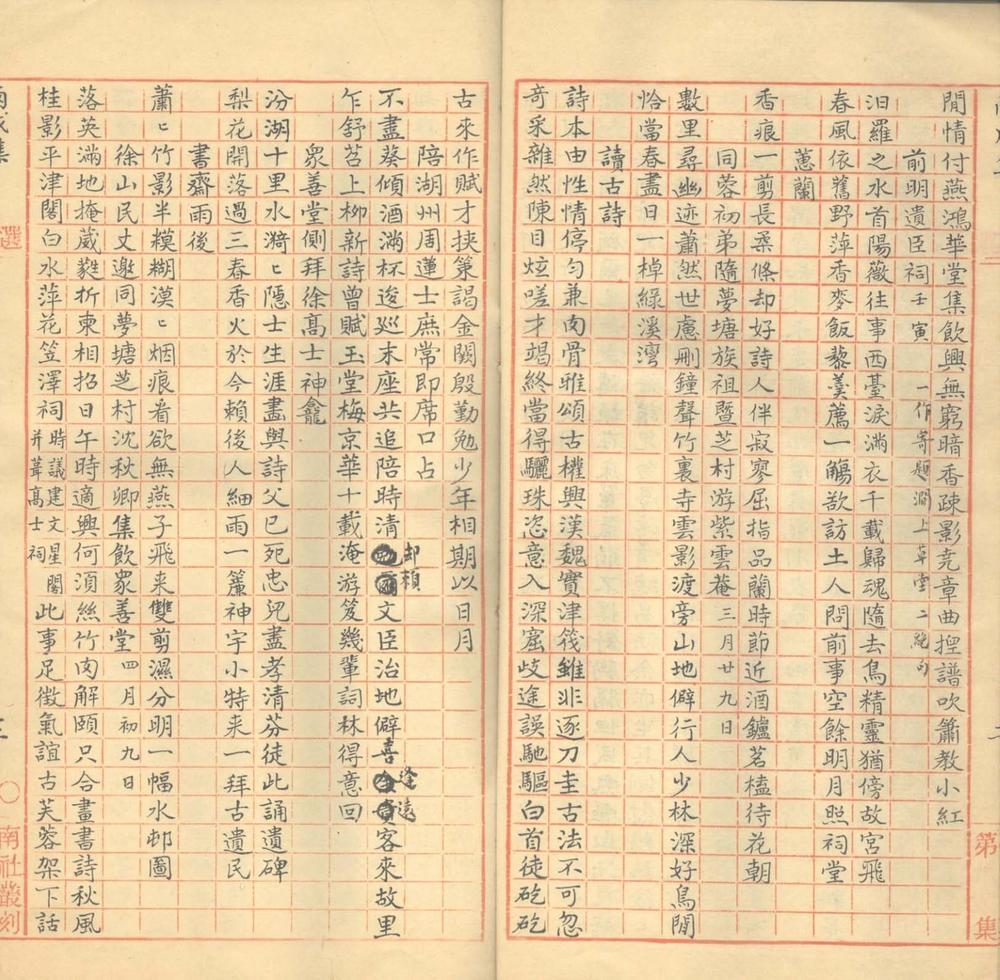 閒情付燕鴻華堂集飲興無窮暗香疎影堯章曲揑譜吹簫教小紅
前明遺臣祠壬寅 一作寄題澗上草堂二絶句
汨羅之水首陽薇往事西臺淚滿衣千載歸魂隨去鳥精靈猶傍故宮飛
春風依舊野萍香麥飯藜羹薦一觴欲訪土人問前事空餘明月照祠堂
蕙蘭
香痕一剪長柔條却好詩人伴寂寥屈指品蘭時節近酒鑪茗榼待花朝
同蓉初弟隨夢塘族祖暨芝村游紫雲菴三月廿九日
數里尋幽迹蕭然世慮刪鐘聲竹裏寺雲影渡旁山地僻行人少林深好鳥閒
恰當春盡日一棹綠溪灣
讀古詩
詩本由性情停勻兼肉骨雅頌古權輿漢魏實津筏雖非逐刀圭古法不可忽
奇采雜然陳目炫嗟才竭終當得驪珠恣意入深窟岐途誤馳驅白首徒矻矻
古來作賦才挾策謁金闕殷勤勉少年相期以日月
陪湖州周蓮士庶常即席口占
不盡葵傾酒滿杯逡巡末座共追陪時清却賴文臣治地僻喜逢遠客來故里
乍舒苕上柳新詩曾賦玉堂梅京華十載淹游笈幾輩詞林得意回
眾善堂側拜徐高士神龕
汾湖十里水漪ヒ隱士生涯畫與詩父已死忠兒盡孝清芬徒此誦遺碑
梨花開落過三春香火於今賴後人細雨一簾神宇小特来一拜古遺民
書齋雨後
蕭ヒ竹影半糢糊漠ヒ烟痕看欲無燕子飛来雙剪濕分明一幅水邨圖
徐山民丈邀同夢塘芝村沈秋卿集飲眾善堂四月初九日
落英滿地掩葳蕤折柬相招日午時適興何須絲竹肉解頤只合畫書詩秋風
桂影平津閣白水萍花笠澤祠時議建文星閣并葺高士祠此事足徵氣誼古芙蓉架下話
選
南社叢刻
第
集